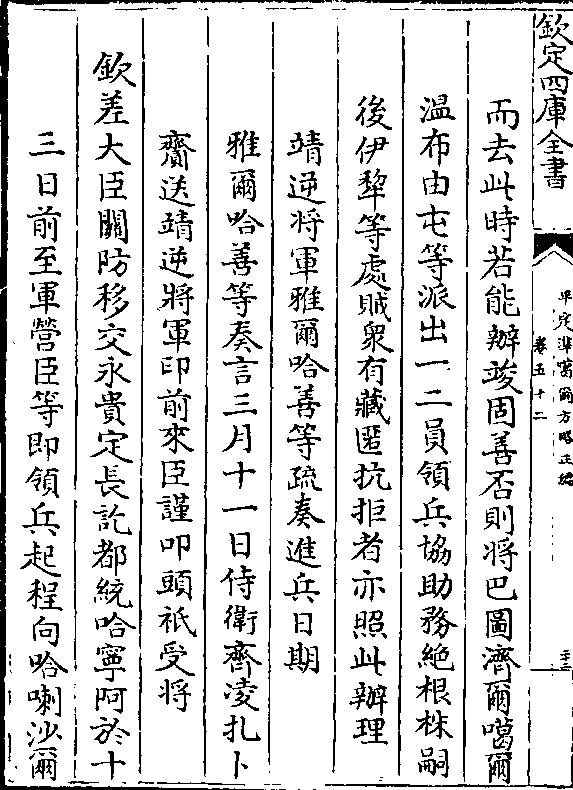 欽定四庫全書
平定準噶爾方略正編
卷五十二
而去此時若能辦竣固善否則將巴圖濟爾噶爾
溫布由屯等派出一二員領兵協助務絕根株嗣
後伊犂等處賊衆有藏匿抗拒者亦照此辦理
靖逆將軍雅爾哈善等疏奏進兵日期
雅爾哈善等奏言三月十一日侍衛齊淩扎卜
齎送靖逆將軍印前來臣謹叩頭祇受將
欽差大臣關防移交永貴定長訖都統哈寧阿於十
三日前至軍營臣等即領兵起程向哈喇沙爾